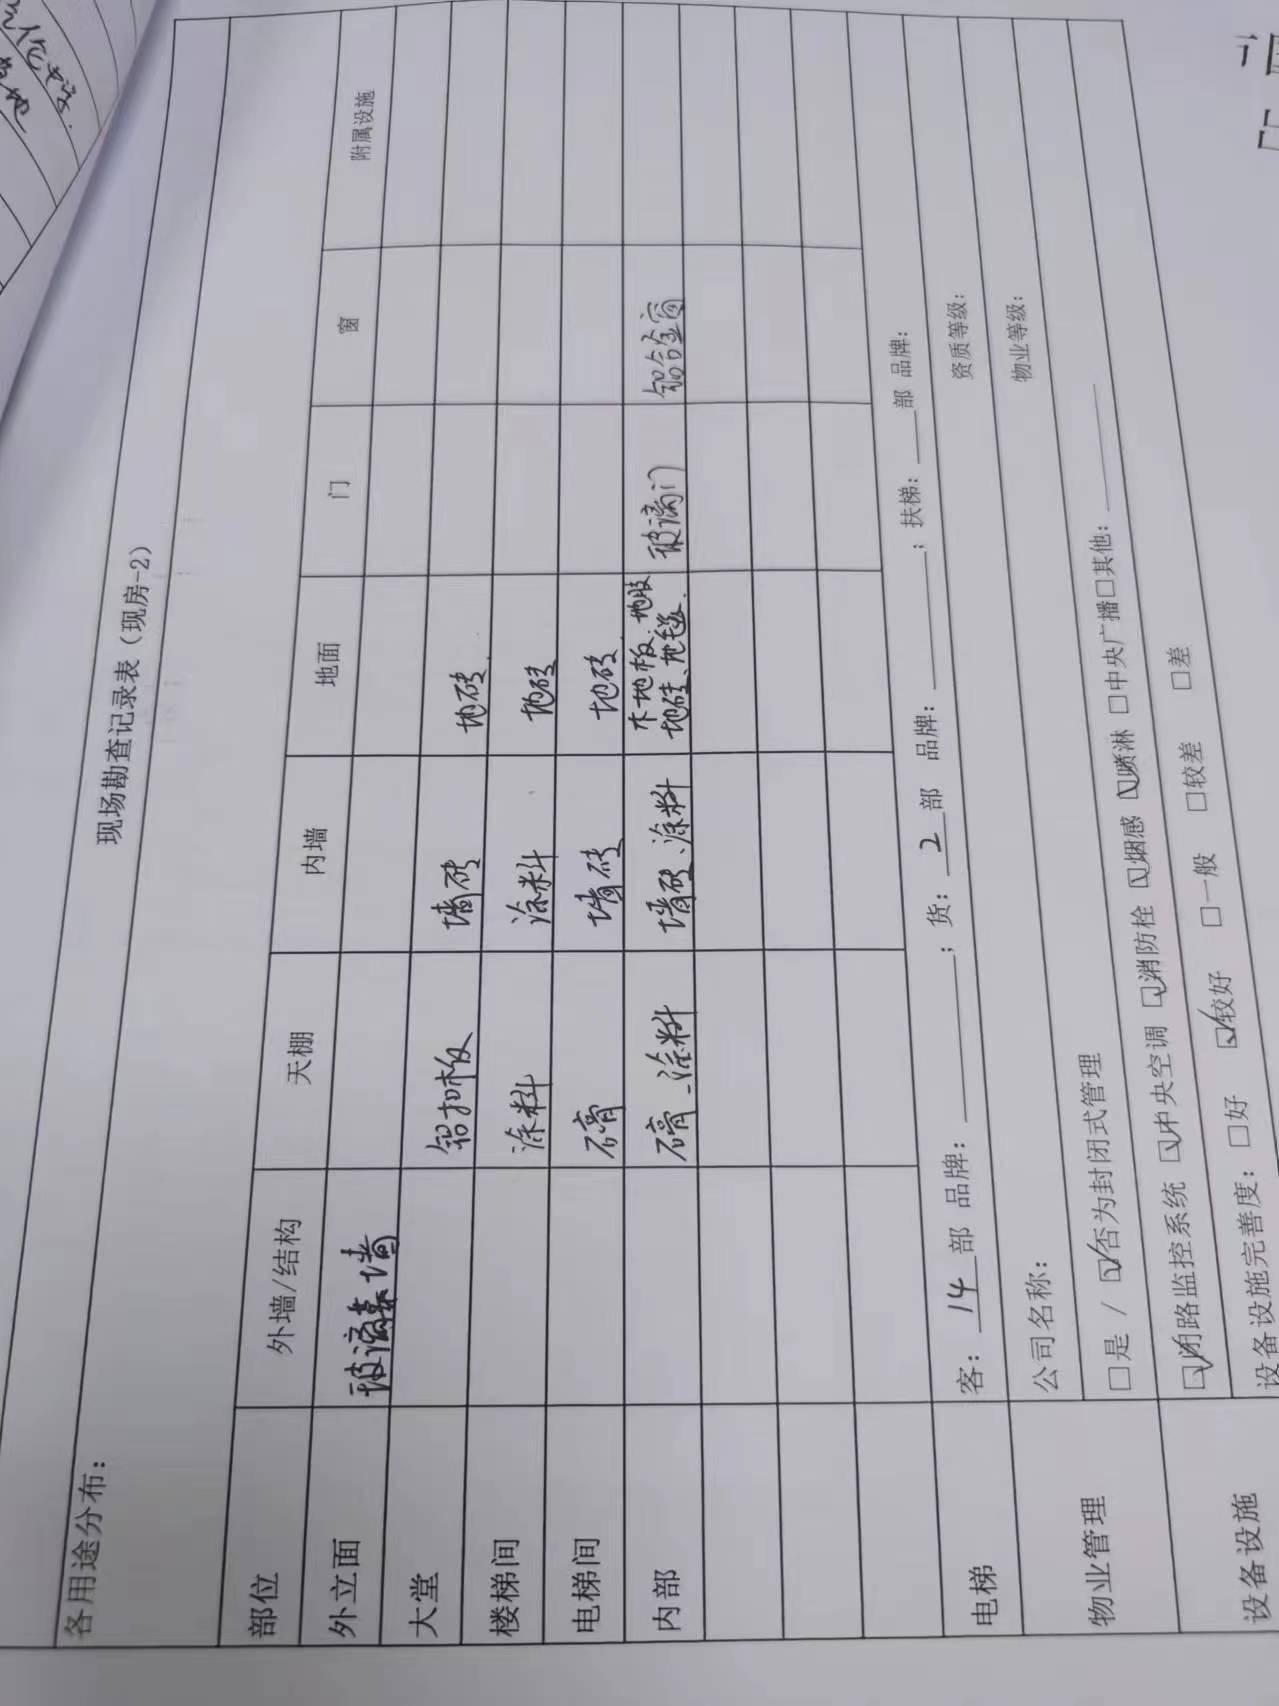 现场勘查记录表（现房-2）
各用途分布：
部位 外墙/结构 天棚 内墙 地面 门 窗 附属设施
外立面 玻璃幕墙
大堂 铝扣板 墙砖 地砖
楼梯间 涂料 涂料 地砖
电梯间 膏 墙砖 地砖
内部 膏、涂料 墙砖、涂料 木地板、地胶 地砖、地毯 玻璃门 铝合金窗
电梯 客：14部 品牌： ；货：2部 品牌： ；扶梯： 部 品牌：
物业管理 公司名称： 资质等级：
□是 / ☑否为封闭式管理 物业等级：
设备设施 ☑闭路监控系统 ☑中央空调 ☑消防栓 ☑烟感 ☑喷淋 □中央广播□其他：
设备设施完善度：□好 ☑较好 □一般 □较差 □差